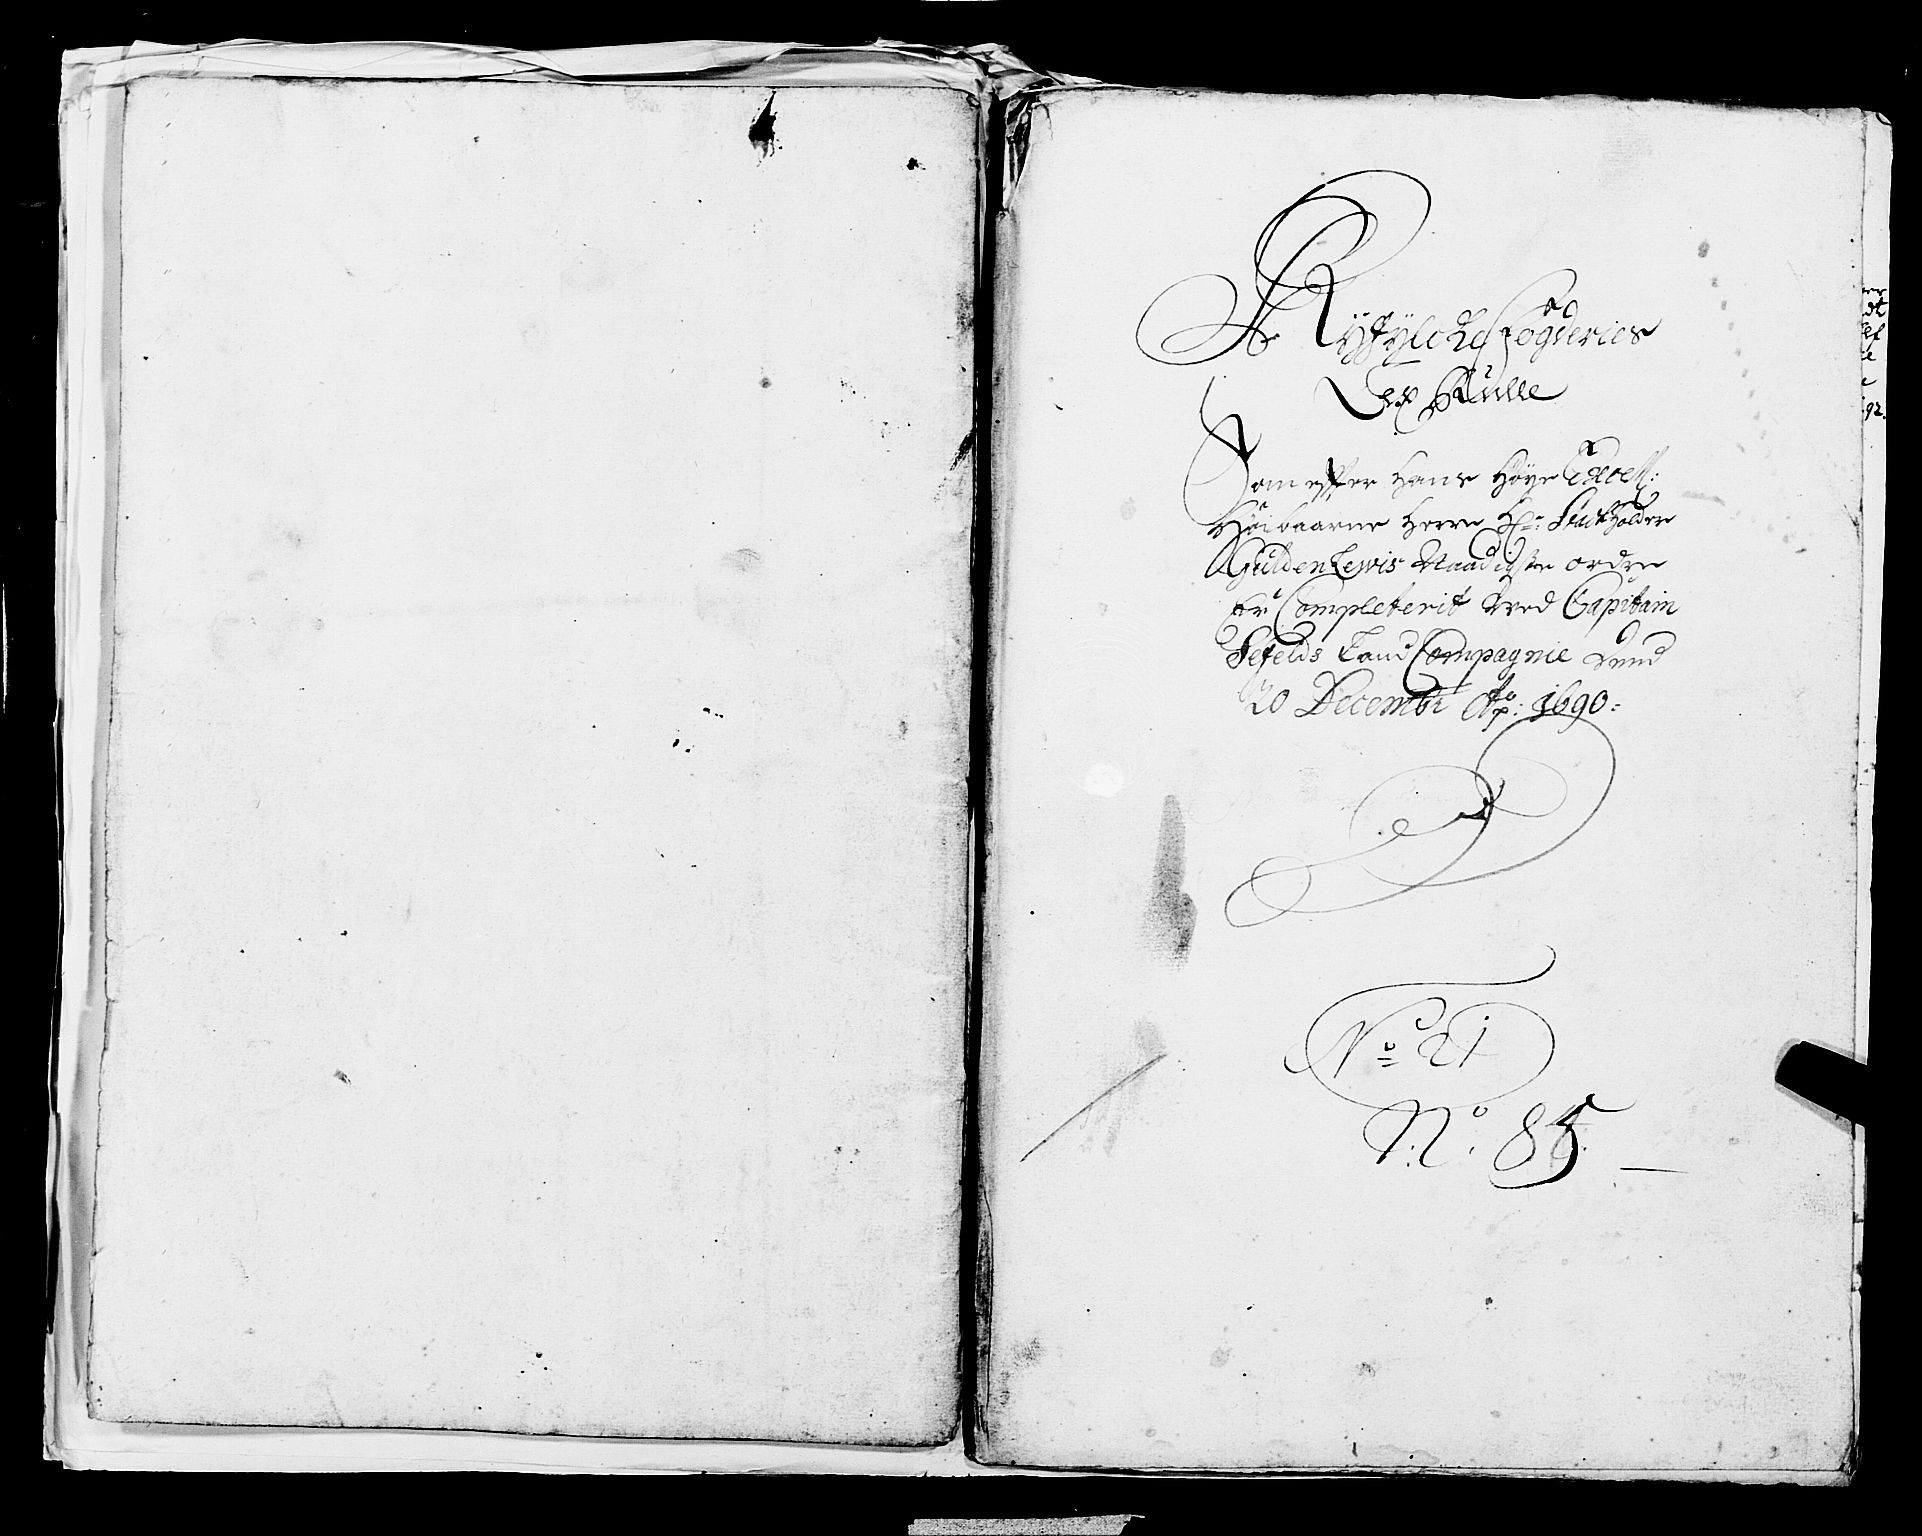 Ryfylcke Fögderies
Lex Rulle
Som effter Hans Høye Excell:
Høibaarne Herre Hr: Stadtholder
Guldenlewis Naadigste ordre
er Completerit Ved Capitain
Sefelds Land Compagnie
20 Decembr Ao: 1690:
No 21
No. 85